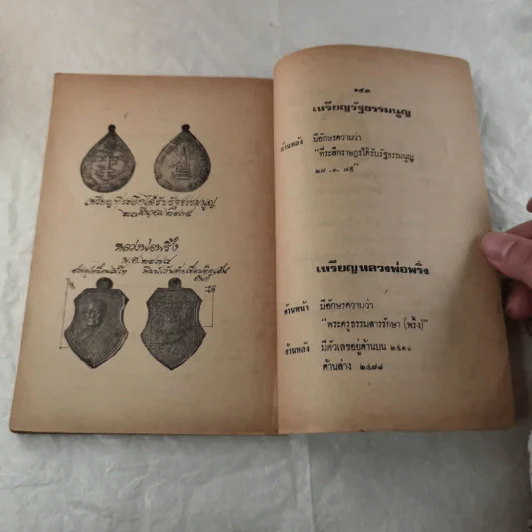 เหรียญที่ระลึกได้รับรัฐธรรมนูญ
หลวงพ่อพริ้ง
พ.ศ. ๒๔๗๘
๑๔๓
เหรียญรัฐธรรมนูญ
ด้านหลัง มีอักษรความว่า
"ที่ระลึกราษฎรได้รับรัฐธรรมนูญ
เหรียญหลวงพ่อพริ้ง
ด้านหน้า มีอักษรความว่า
"พระครูธรรมสารรักษา (พริ้ง)"
ด้านหลัง มีตัวเลขอยู่ด้านบน
ด้านล่าง ๒๔๗๘